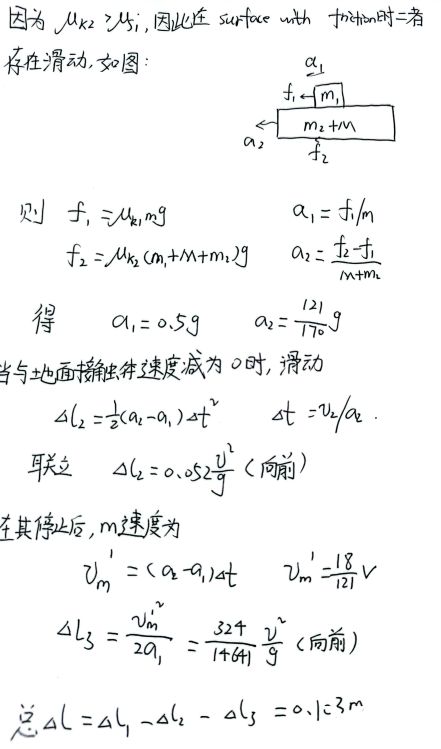 因为 μk2 > μs1, 因此在 surface with friction时二者
存在滑动, 如图:
a1
f1 ← m1
m2+M
a2
f2
则 f1 = μk1 mg a1 = f1/m
f2 = μk2 (m1+M+m2)g a2 = (f2-f1)/(M+m2)
得 a1 = 0.5g a2 = 121/170 g
当与地面接触体速度减为0时, 滑动
Δl2 = 1/2 (a2-a1) Δt² Δt = v2/a2 .
联立 Δl2 = 0.052 v²/g (向前)
在其停止后, m速度为
vm' = (a2-a1)Δt vm' = 18/121 v
Δl3 = vm'²/2a1 = 324/14641 v²/g (向前)
总 Δl = Δl1 - Δl2 - Δl3 = 0.133m